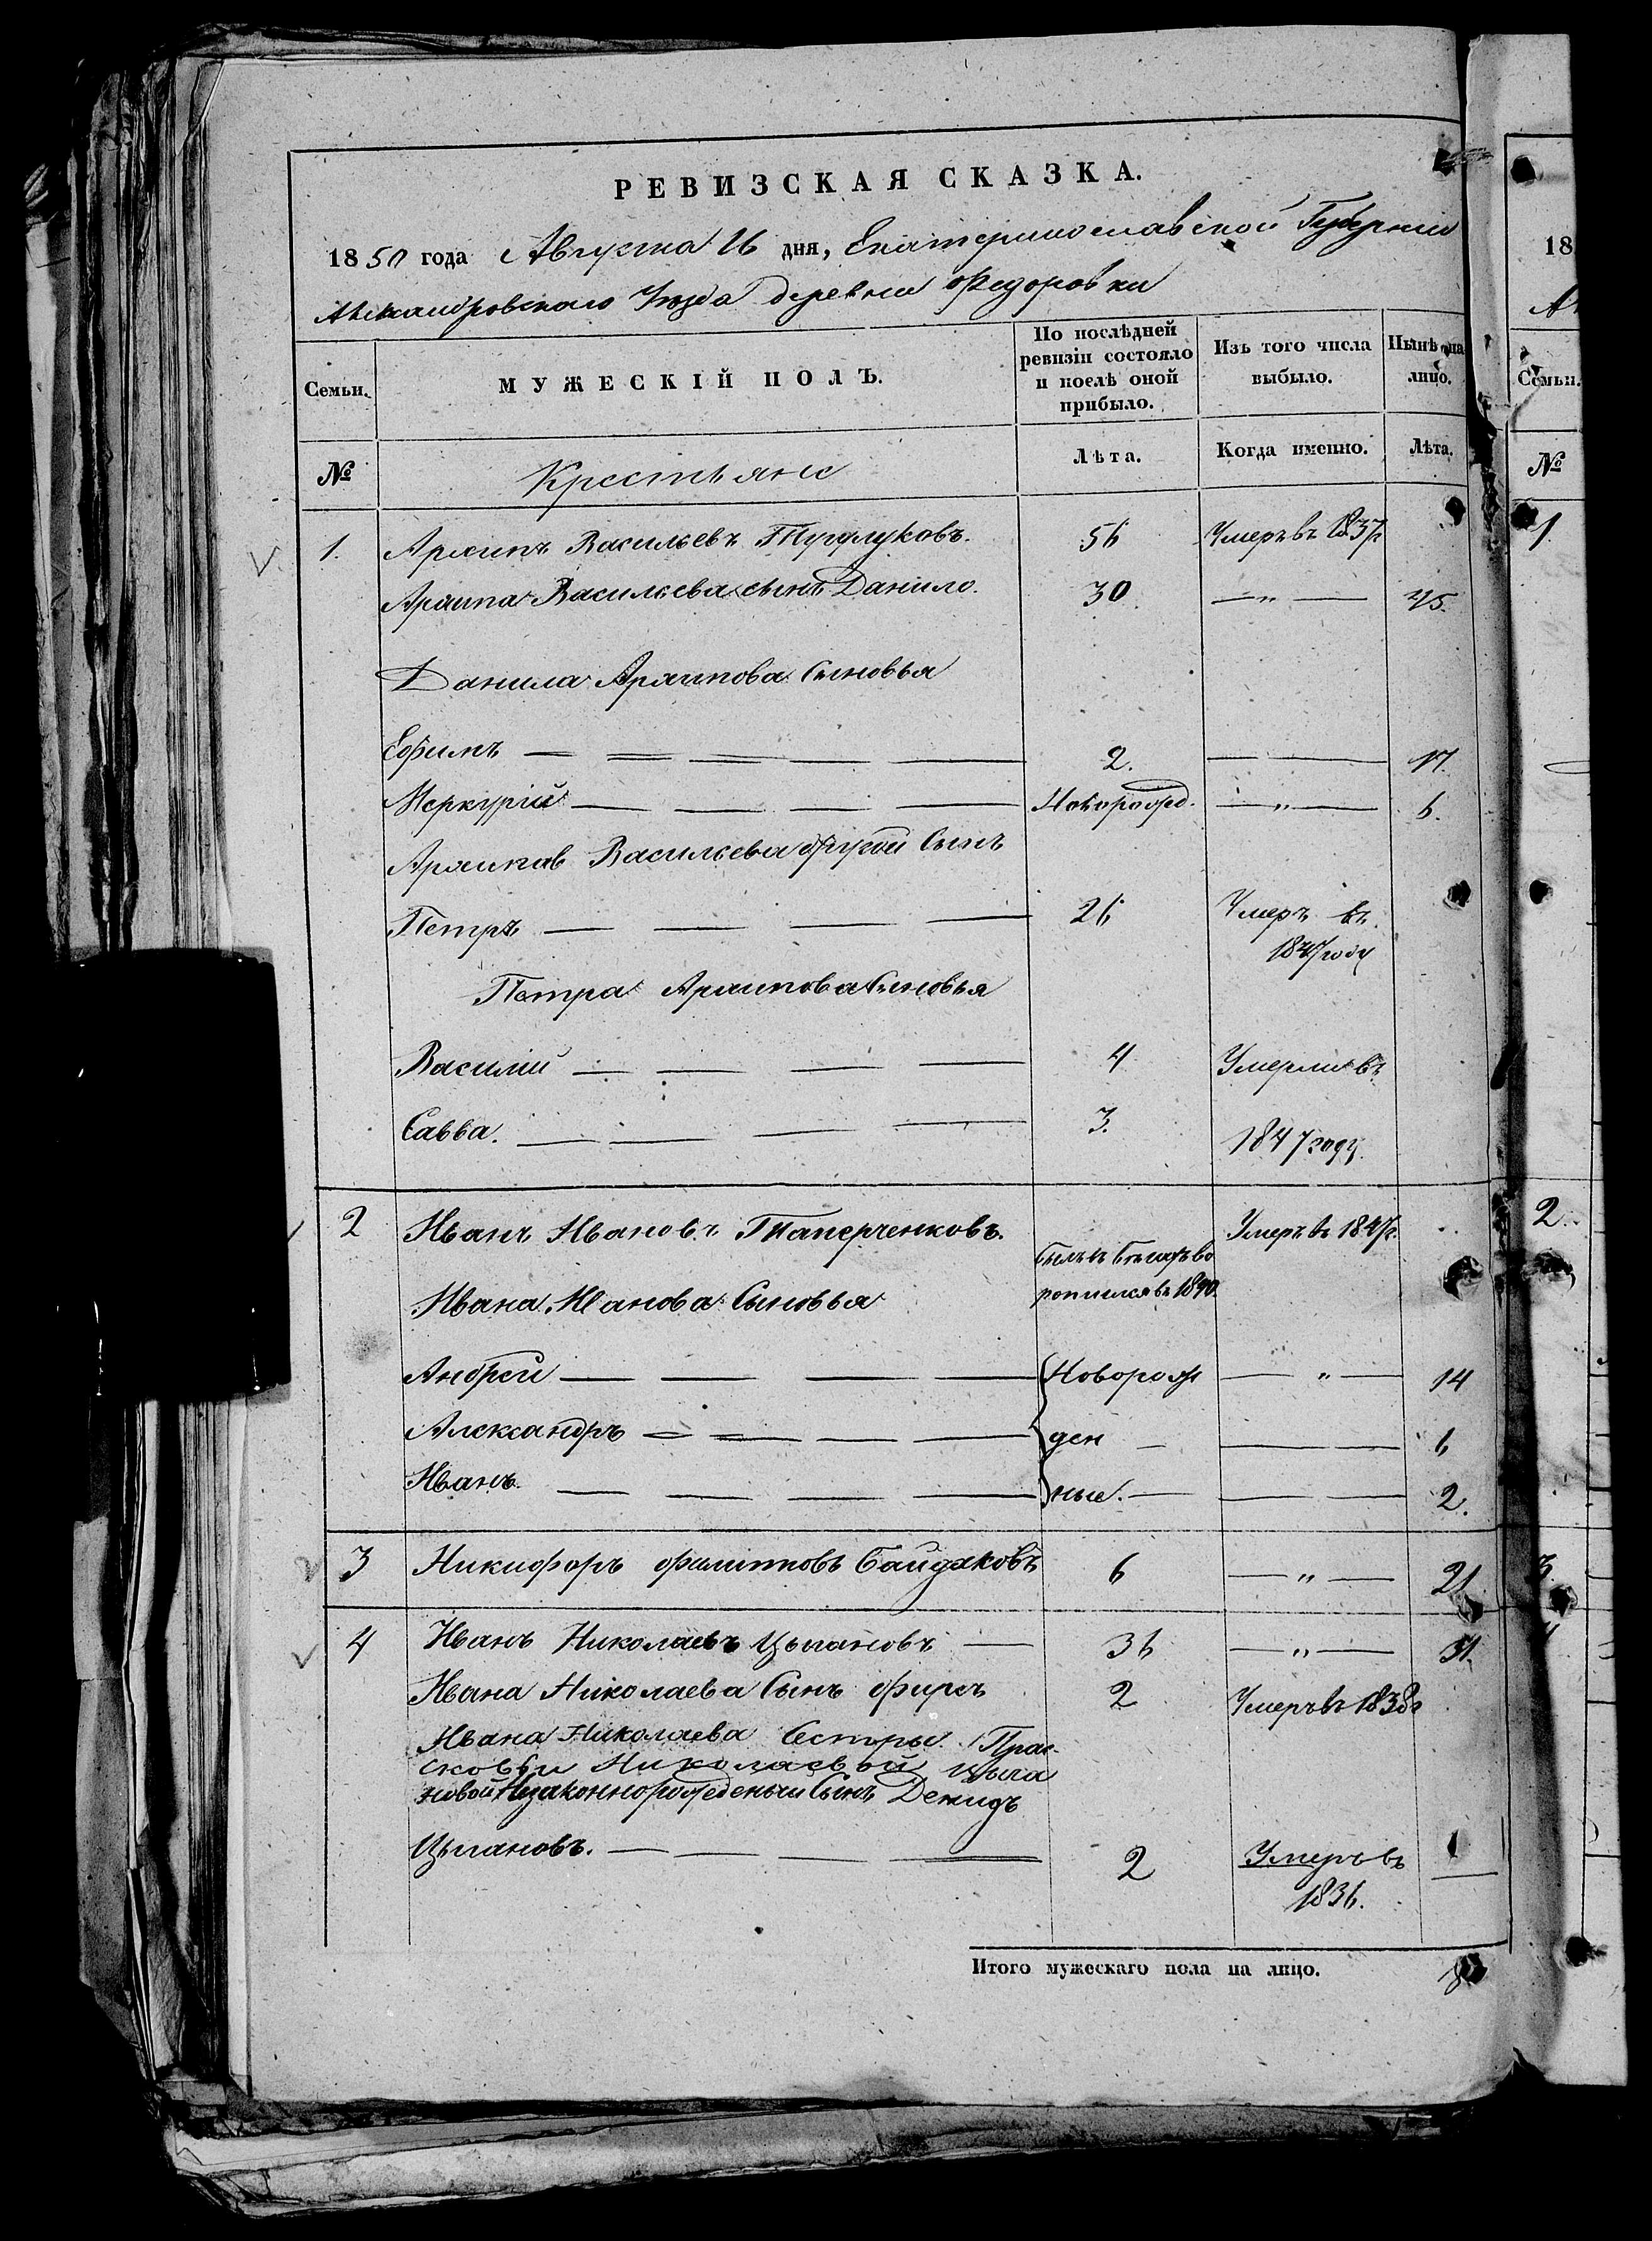 РЕВИЗСКАЯ СКАЗКА.
1850 года Августа 16 дня, Екатеринославской Губернии
Александровского Уезда деревни Федоровки
Семьи. МУЖЕСКІЙ ПОЛЪ. По послѣдней ревизіи состояло и послѣ оной прибыло. Изъ того числа выбыло. Нынѣ на лицо.
№ Крестьяне Лѣта. Когда именно. Лѣта.
1. Архипъ Васильевъ 56 Умеръ въ 1837г
Архипа Васильева сынъ Данило. 30 — „ — 45.
Данила Архипова Сыновья
Ефимъ 2. — 17.
Меркурій Новорожд. — „ — 6.
Архипа Васильева другой Сынъ
Петръ 26 Умеръ въ
1847 году
Петра Архипова Сыновья
Василій 4 Умерли въ
Савва. 3. 1847 году.
2 Иванъ Ивановъ Умеръ въ 1847г.
Ивана Иванова Сыновья въ 1840.
Андрей Новорож — „ — 14
Александръ ден — 6
Иванъ. ные. — 2.
3 Никифоръ Филиповъ Байдаковъ 6 — „ — 21
4 Иванъ Николаевъ Цыгановъ — 36 — „ — 51.
Ивана Николаева Сынъ Фирсъ 2 Умеръ въ 1838г
Ивана Николаева Сестры Прас-
ковьи Николаевой Цыга
новой Незаконнорожденный Сынъ Демидъ
Цыгановъ. 2 Умеръ въ
1836.
Итого мужескаго пола на лицо. 8
18
Семьи.
№
1
2
3